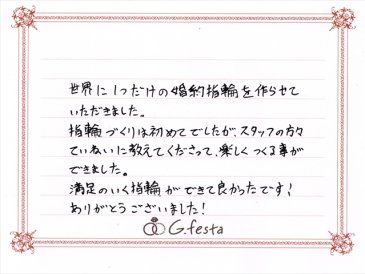 世界に1つだけの婚約指輪を作らせて
いただきました。
指輪づくりは初めてでしたが、スタッフの方々
ていねいに教えてくださって、楽しくつくる事が
できました。
満足のいく指輪ができて良かったです!
ありがとうございました!
G.festa